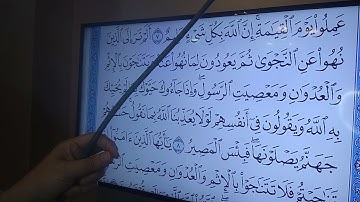 عَمِلُوا۟ يَوْمَ ٱلْقِيَٰمَةِ ۚ إِنَّ ٱللَّهَ بِكُلِّ شَىْءٍ ٧ أَلَمْ تَرَ إِلَى ٱلَّذِينَ
نُهُوا۟ عَنِ ٱلنَّجْوَىٰ ثُمَّ يَعُودُونَ لِمَا نُهُوا۟ عَنْهُ وَيَتَنَٰجَوْنَ بِٱلْإِثْمِ
وَٱلْعُدْوَٰنِ وَمَعْصِيَتِ ٱلرَّسُولِ ۖ وَإِذَا جَآءُوكَ حَيَّوْكَ بِمَا لَمْ يُحَيِّكَ
بِهِ ٱللَّهُ وَيَقُولُونَ فِىٓ أَنفُسِهِمْ لَوْلَا يُعَذِّبُنَا ٱللَّهُ بِمَا نَقُولُ ۚ حَسْبُهُمْ
جَهَنَّمُ يَصْلَوْنَهَا ۖ فَبِئْسَ ٱلْمَصِيرُ ٨ يَٰٓأَيُّهَا ٱلَّذِينَ ءَامَنُوٓا۟ إِذَا
تَنَٰجَيْتُمْ فَلَا تَتَنَٰجَوْا۟ بِٱلْإِثْمِ وَٱلْعُدْوَٰنِ وَمَعْصِيَتِ